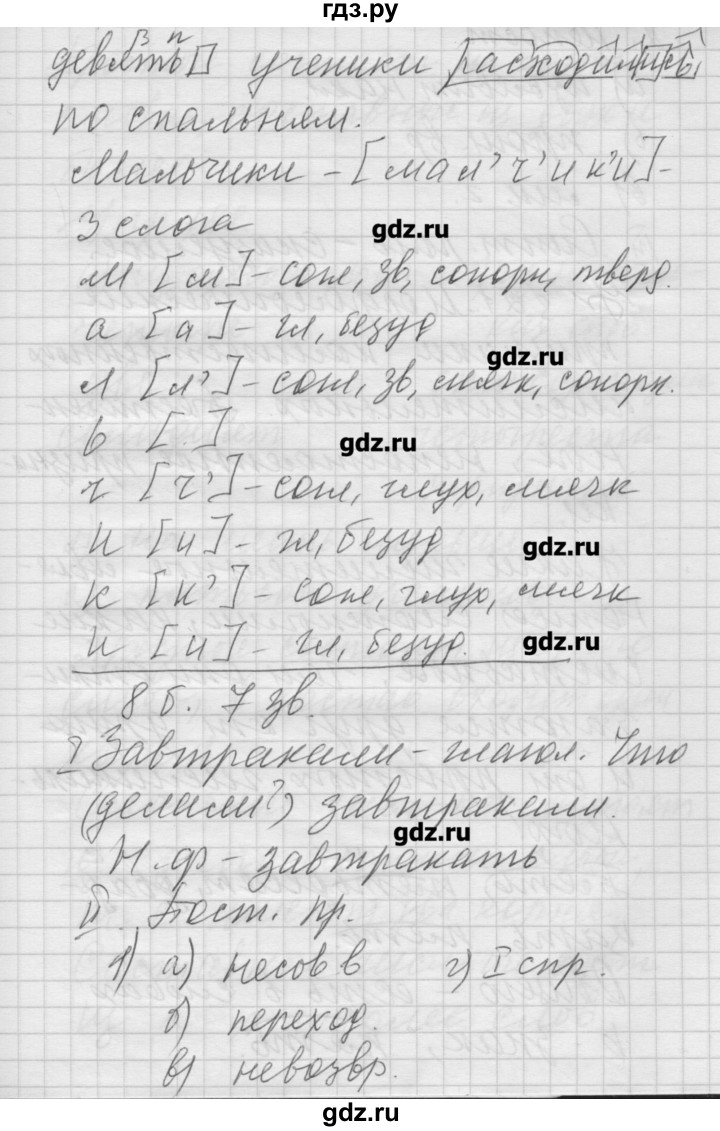 гдз.ру
девять ученики расходились
3 п
по спальням.
Мальчики - [мал’ч’ик’и]-
3 слога
gdz.ru
м [м]-согл, зв, сонорн, тверд.
а [а]- гл, безуд
gdz.ru
л [л’]-согл, зв, мягк, сонорн.
ь [ ]
gdz.ru
ч [ч’]-согл, глух, мягк
и [и]- гл, безуд
gdz.ru
к [к’]- согл, глух, мягк
и [и]- гл, безуд.
gdz.ru
8 б. 7 зв.
I Завтракали - глагол. Что
(делали?) завтракали.
gdz.ru
Н.ф - завтракать
II. Пост. пр.
1) а) несов в г) I спр.
б) переход.
в) невозвр.
gdz.ru